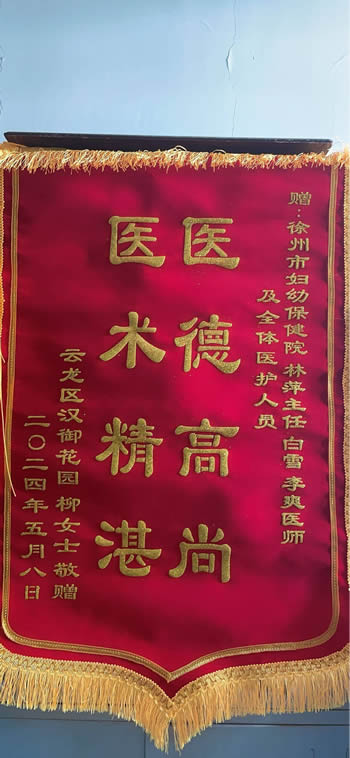 赠：徐州市妇幼保健院 林萍主任 白雪 李爽医师
及全体医护人员
医德高尚
医术精湛
云龙区汉御花园 柳女士 敬赠
二〇二四年五月八日